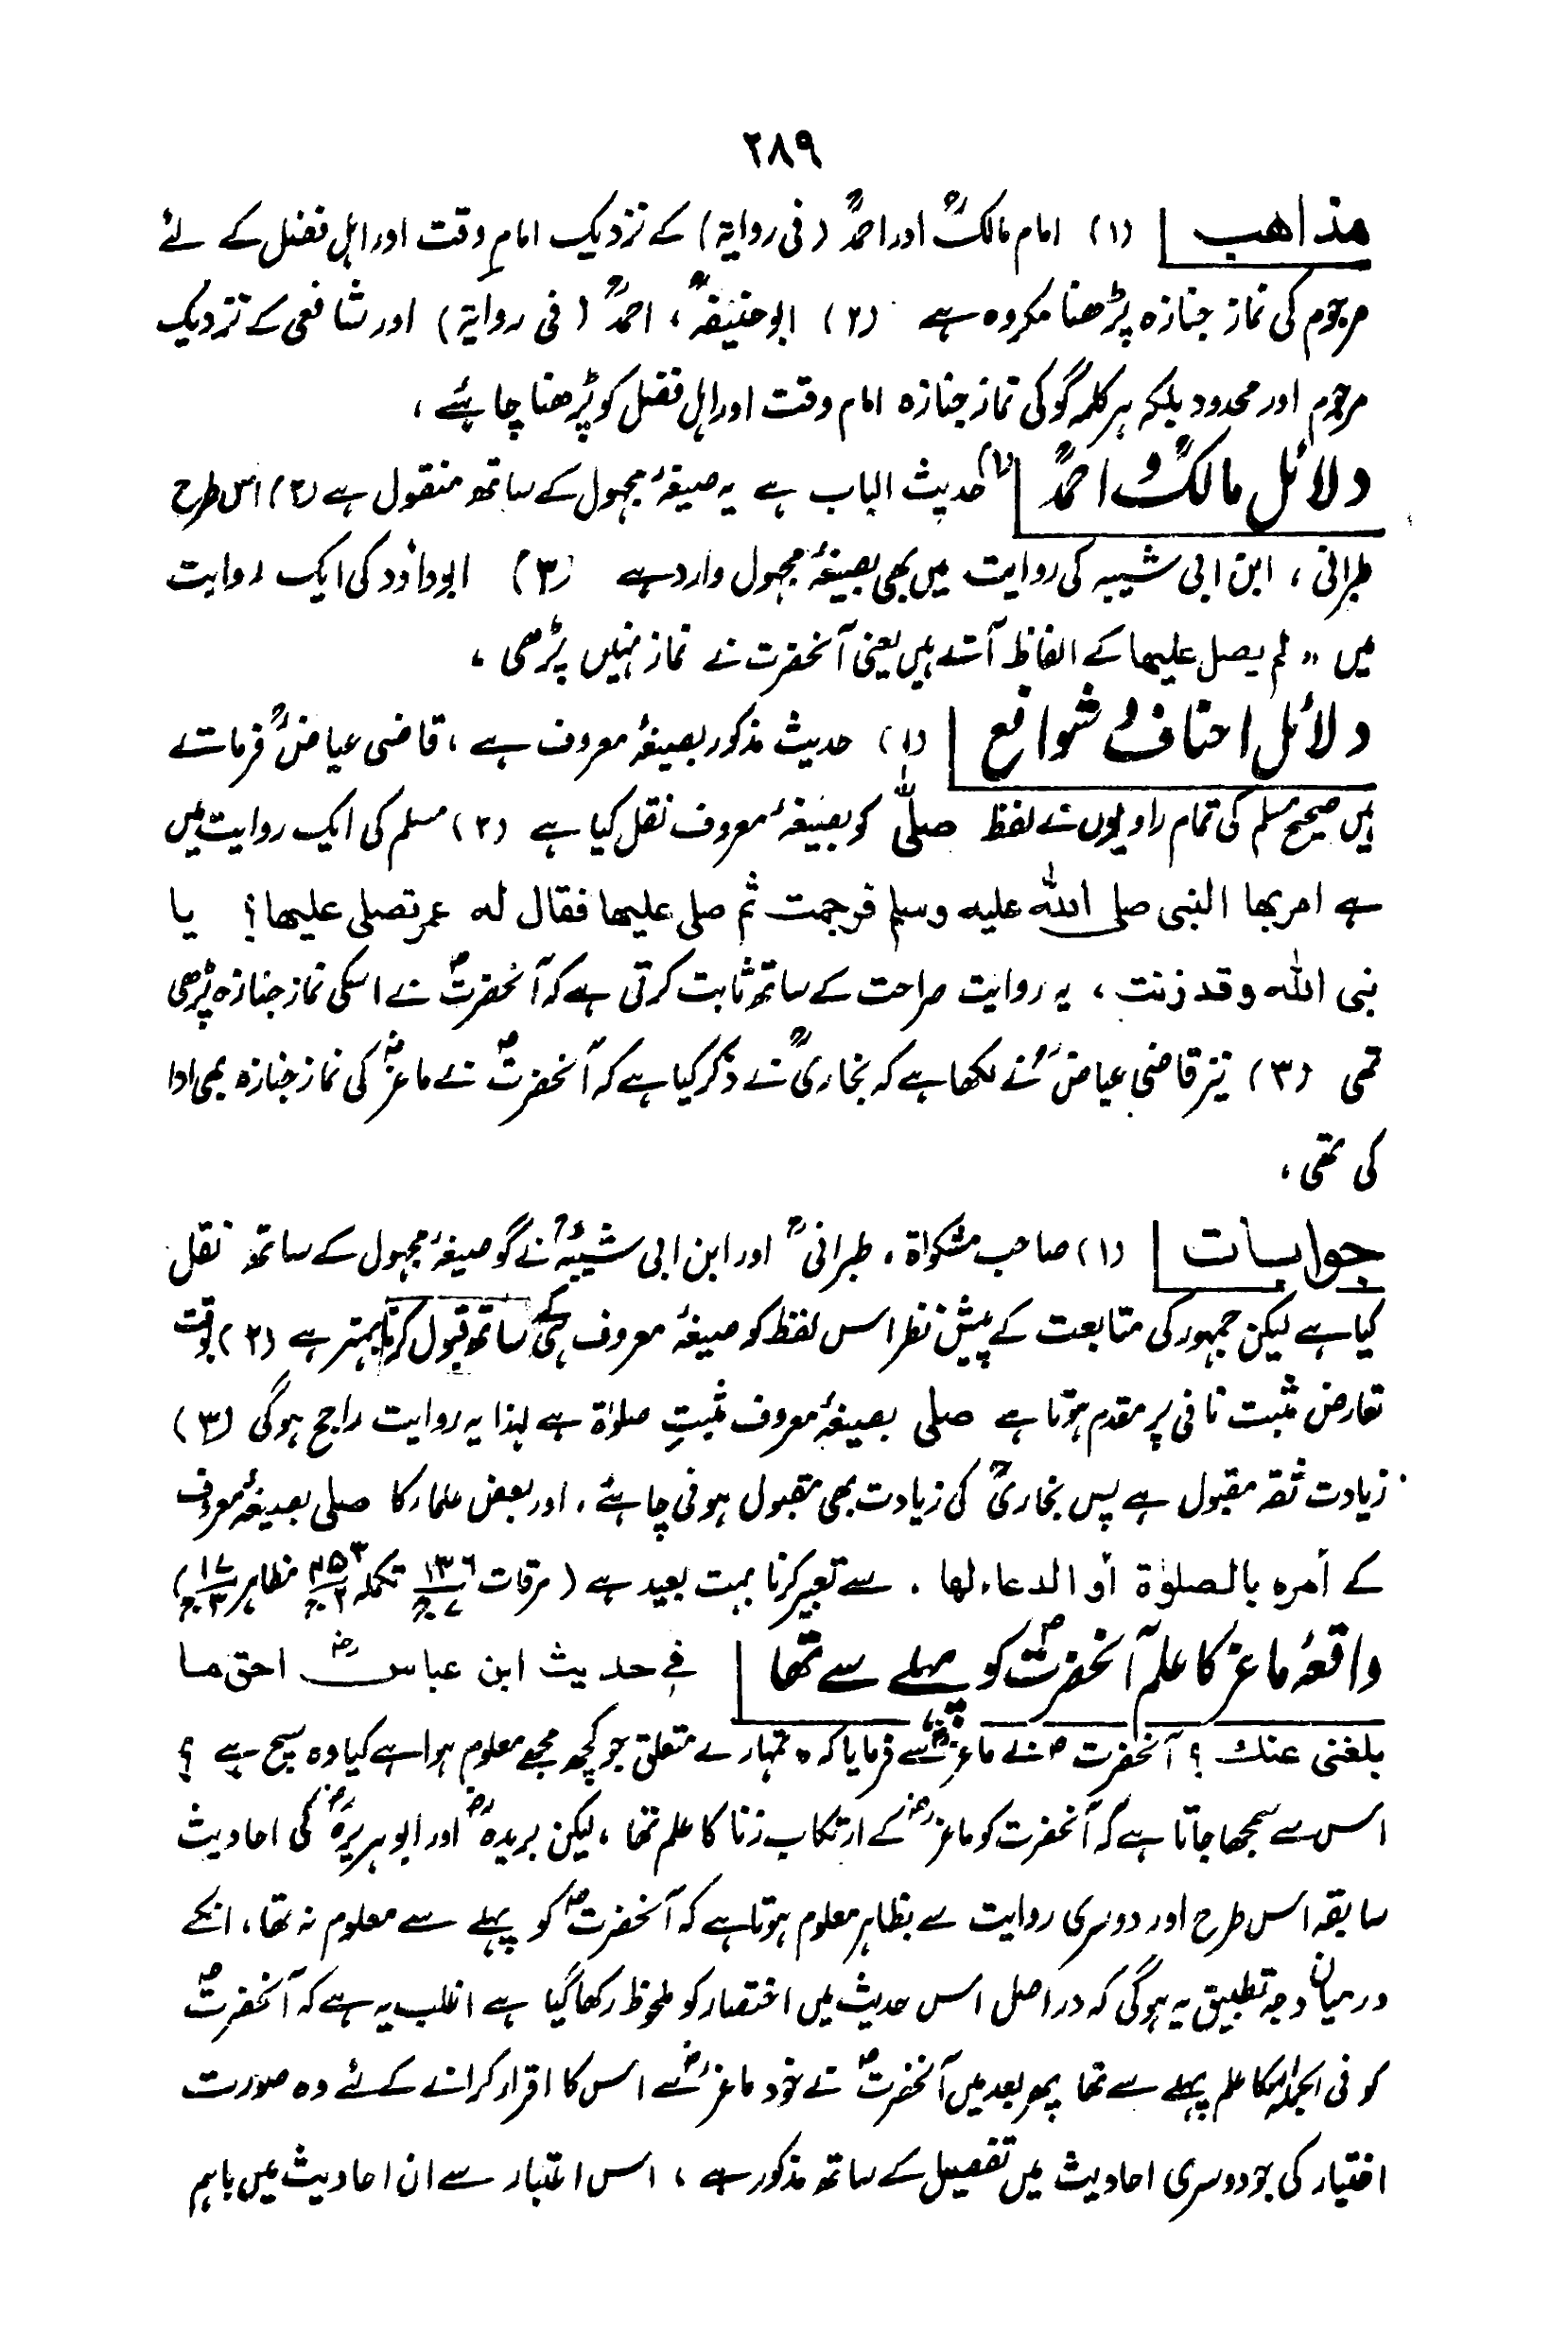 ۲۸۹
مذاھب (۱) امام مالکؒ اور احمدؒ (فی روایۃ) کے نزدیک امامِ وقت اور اہلِ فضل کے لئے
مرجوم کی نماز جنازہ پڑھنا مکروہ ہے (۲) ابوحنیفہؒ، احمدؒ (فی روایۃ) اور شافعی کے نزدیک
مرجوم اور محدود بلکہ ہر کلمہ گو کی نماز جنازہ امام وقت اور اہل فضل کو پڑھنا چاہئے ،
دلائل مالکؒ و احمدؒ (۱) حدیث الباب ہے یہ صیغۂ مجہول کے ساتھ منقول ہے (۲) اس طرح
طبرانی ، ابن ابی شیبہ کی روایت میں بھی بصیغۂ مجہول وارد ہے (۳) ابوداؤد کی ایک روایت
میں ،، لم یصل علیھا کے الفاظ آتے ہیں یعنی آنحضرت نے نماز نہیں پڑھی ،
دلائل احناف و شوافع (۱) حدیث مذکور بصیغۂ معروف ہے ، قاضی عیاضؒ فرماتے
ہیں صحیح مسلم کی تمام راویوں نے لفظ صلّٰی کو بصیغۂ معروف نقل کیا ہے (۲) مسلم کی ایک روایت میں
ہے امر بھا النبی صلی اللہ علیہ وسلم فرجمت ثم صلی علیھا فقال لہ عمر تصلی علیھا؟ یا
نبی اللہ وقد زنت ، یہ روایت صراحت کے ساتھ ثابت کرتی ہے کہ آنحضرتؐ نے اسکی نماز جنازہ پڑھی
تھی (۳) نیز قاضی عیاضؒ نے لکھا ہے کہ بخاریؒ نے ذکر کیا ہے کہ آنحضرتؐ نے ماعزؓ کی نماز جنازہ بھی ادا
کی تھی ،
جوابات (۱) صاحب مشکواۃ ، طبرانیؒ اور ابن ابی شیبہؒ نے گو صیغۂ مجہول کے ساتھ نقل
کیا ہے لیکن جمہور کی متابعت کے پیش نظر اس لفظ کو صیغۂ معروف ہی کے ساتھ قبول کرنا بہتر ہے (۲) بوقت
تعارض مثبت نافی پر مقدم ہوتا ہے صلی بصیغۂ معروف مثبتِ صلوٰۃ ہے لہذا یہ روایت راجح ہوگی (۳)
زیادت ثقہ مقبول ہے پس بخاریؒ کی زیادت بھی مقبول ہونی چاہئے ، اور بعض علماء کا صلی بصیغۂ معروف
کے أمرہ بالصلوٰۃ أو الدعاء لھا ، سے تعبیر کرنا بہت بعید ہے (مرقات ۱۳۶/ج۷ تکملہ ۴۵۳/ج۲ مظاہر ۱۷/ج۳)
واقعۂ ماعز کا علم آنحضرتؐ کو پہلے سے تھا فی حدیث ابن عباسؓ احق ما
بلغنی عنک ؟ آنحضرتؐ نے ماعزؓ سے فرمایا کہ تمہارے متعلق جو کچھ مجھے معلوم ہوا ہے کیا وہ سچ ہے ؟
اس سے سمجھا جاتا ہے کہ آنحضرت کو ماعزؓ کے ارتکاب زنا کا علم تھا ، لیکن بریدہؓ اور ابوہریرہؓ کی احادیث
سابقہ اس طرح اور دوسری روایت سے بظاہر معلوم ہوتا ہے کہ آنحضرتؐ کو پہلے سے معلوم نہ تھا ، انکے
درمیان وجہ تطبیق یہ ہوگی کہ دراصل اس حدیث میں اختصار کو ملحوظ رکھا گیا ہے اغلب یہ ہے کہ آنحضرتؐ
کو فی الجملہ اسکا علم پہلے سے تھا پھر بعد میں آنحضرتؐ نے خود ماعزؓ سے اس کا اقرار کرانے کے لئے وہ صورت
اختیار کی جو دوسری احادیث میں تفصیل کے ساتھ مذکور ہے ، اس اعتبار سے ان احادیث میں باہم